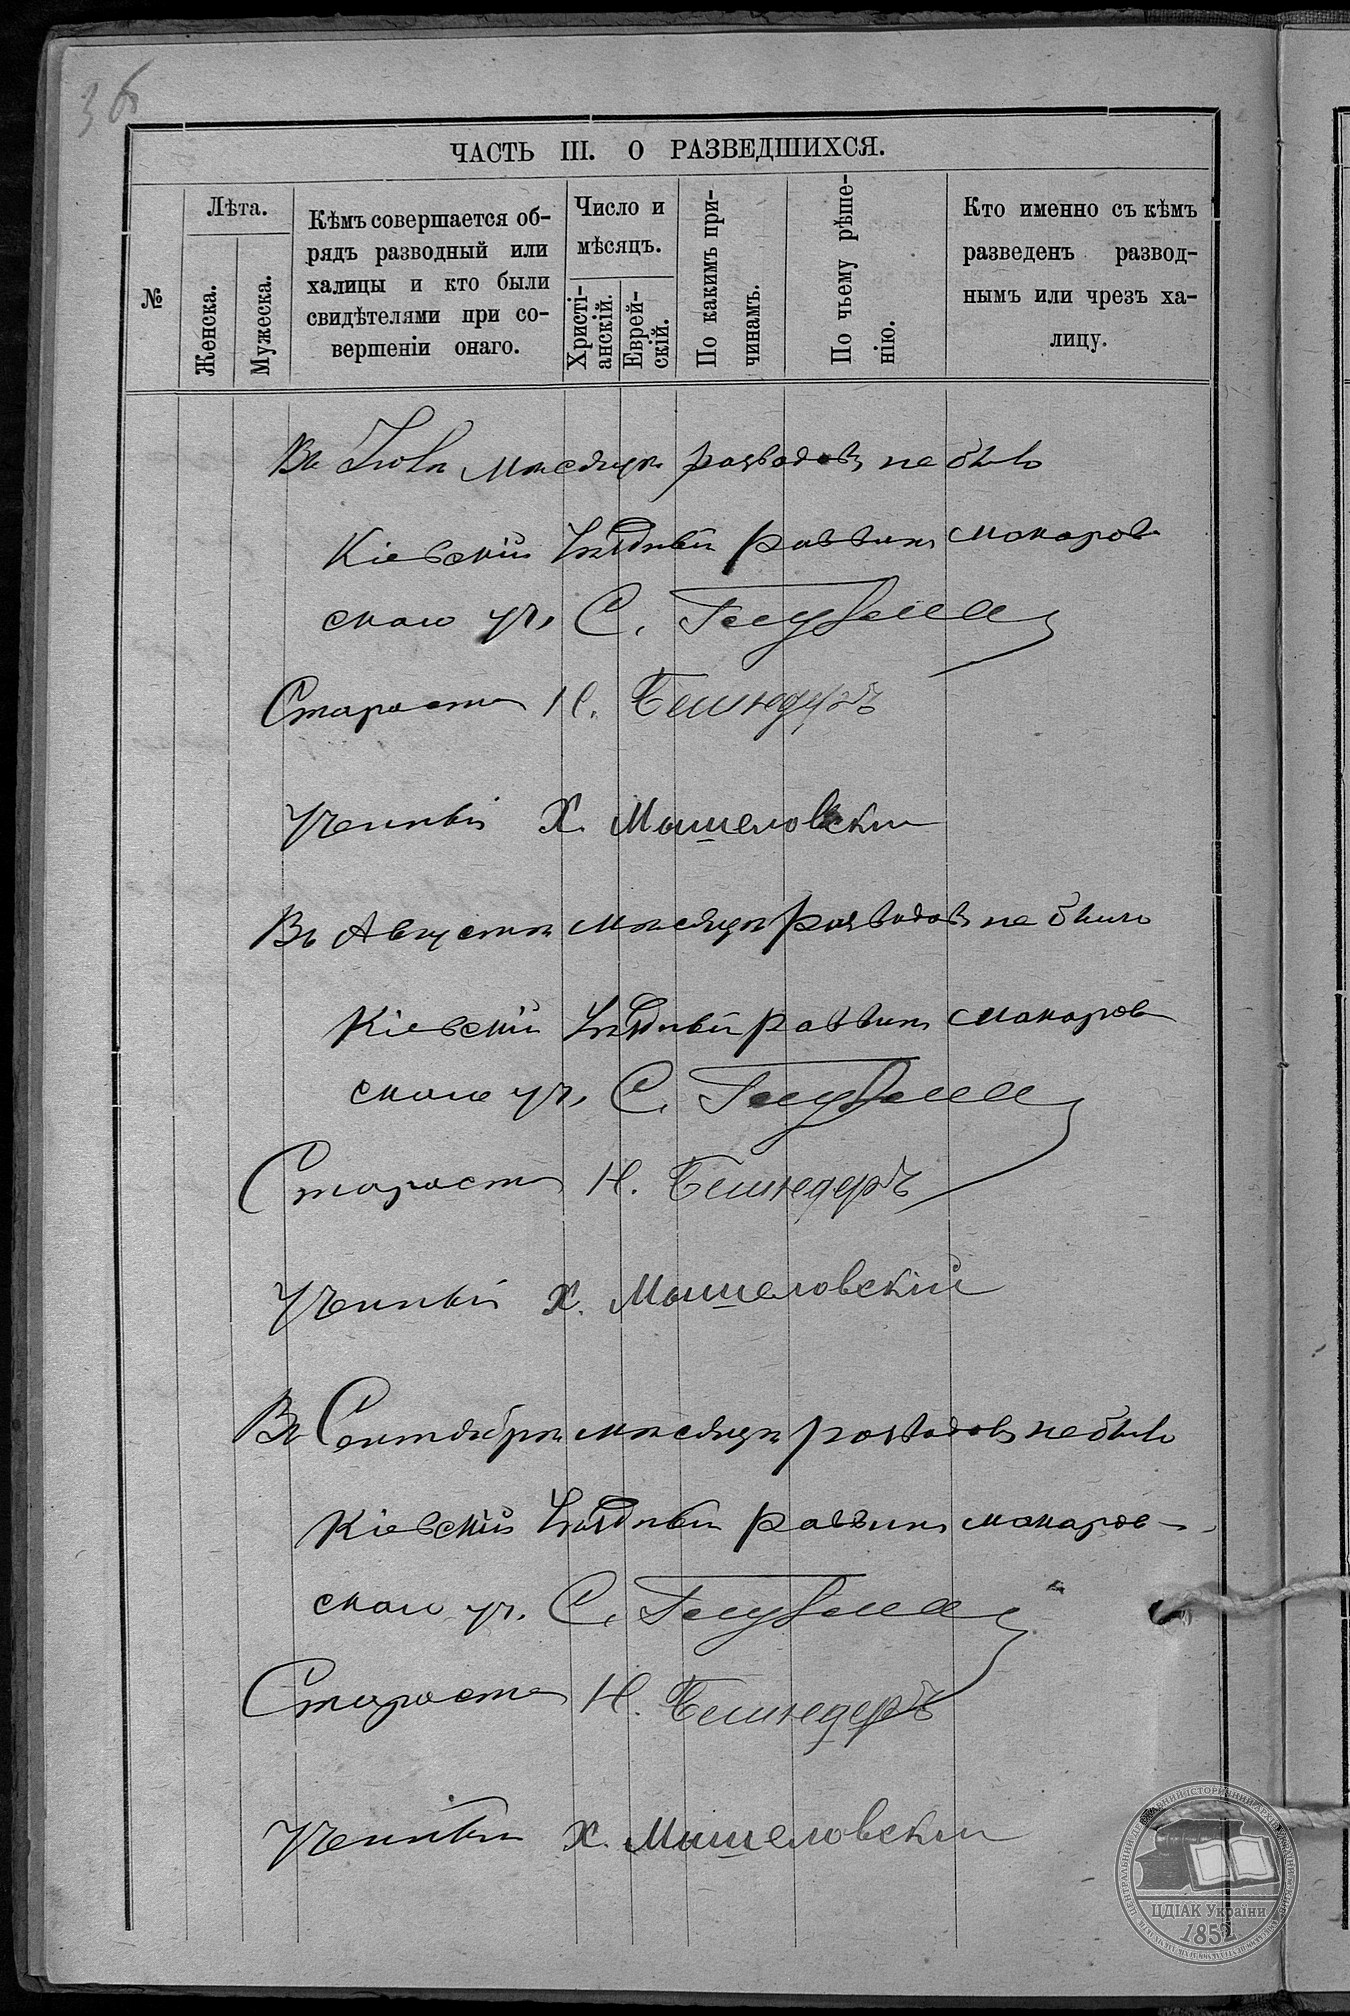 36
ЧАСТЬ III. О РАЗВЕДШИХСЯ.
№
Лѣта.
Женска.
Мужеска.
Кѣмъ совершается об-
рядъ разводный или
халицы и кто были
свидѣтелями при со-
вершеніи онаго.
Число и
мѣсяцъ.
Христі-
анскій.
Еврей-
скій.
По какимъ при-
чинамъ.
По чьему рѣше-
нію.
Кто именно съ кѣмъ
разведенъ развод-
нымъ или чрезъ ха-
лицу.
Въ мѣсяцѣ разводовъ не было
Кіевскій Уѣздный раввинъ Макаров
скаго уч. С.
Староста Н.
Ученый Х. Мошеловскій
Въ Августѣ мѣсяцѣ разводовъ не было
Кіевскій Уѣздный раввинъ Макаров
скаго уч. С.
Староста Н.
Ученый Х. Мошеловскій
Въ Сентябрѣ мѣсяцѣ разводовъ не было
Кіевскій Уѣздный раввинъ Макаров-
скаго уч. С.
Староста Н.
Ученый Х. Мошеловскій
ЦДІАК України
1852